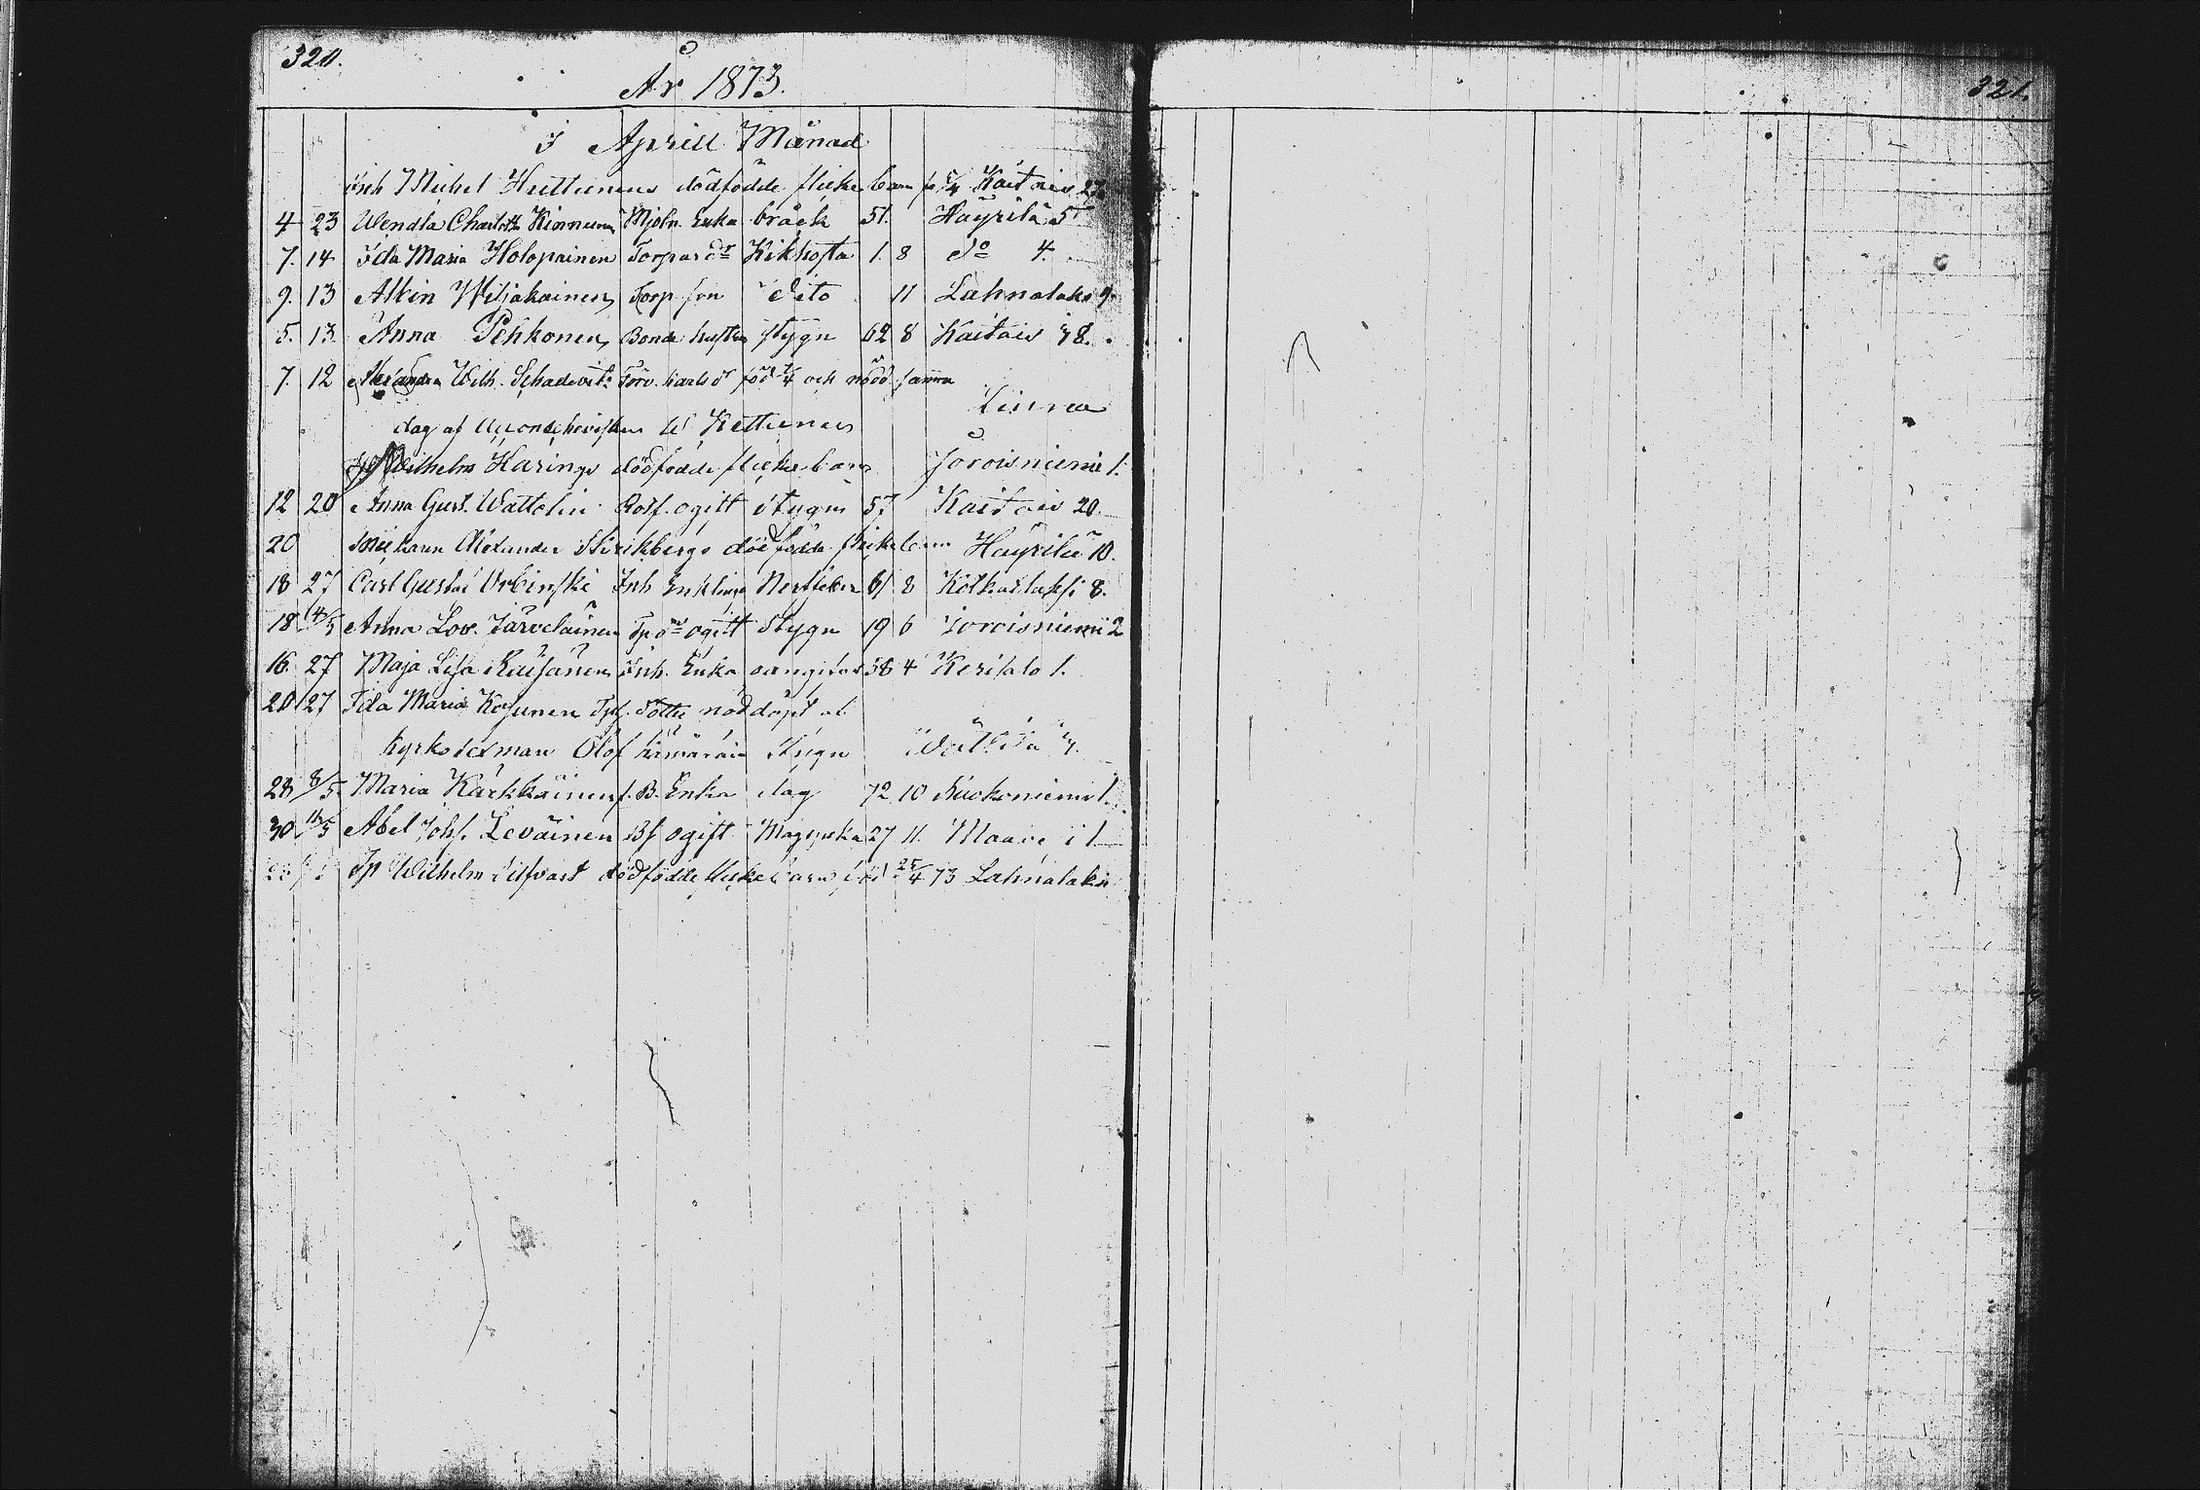 320.
År 1873.
321.
i Aprill Månad
Inh Michel Huttunens dödfödde flicke barn fö 5/4 Kaitais 27
4 23 Wendla Charlotta Kinnunen Mjöln. Enka bråck 51. Häyrilä 5
7. 14 Ida Maria Holopainen Torpar dr Kikhosta 1. 8 do 4.
9. 13 Albin Wiljakainen Torp son dito 11 Lahnalaks 9.
5. 13. Anna Pehkonen Bonde hustru stygn 62 8 Kaitais 18.
7. 12 Alexandra Wilh. Schadevitz Förv. Karls dr föd 7/4 och nödd. samma
dag af W Kettunen Linna
Wilhelm Härings dödfödde flicke barn Joroisniemi 1.
12 20 Anna Gust. Wattolin ogift stygn 57 Kaitais 20.
20 Alexander Strikbergs dödfödda flicke barn Häyrilä 10.
18 27 Carl Gustaf Orbinski Inh Enkling Nervfeber 61 8 Kotkatlaksi 8.
18 4/5 Anna Lov. Järveläinen Tp dr ogift Stygn 19 6 Joroisniemi 2
16. 27 Maja Lisa Räisänen Inh. Enka 58 4 Kerisalo 1.
20 27 Ida Maria Kosunen Tpf. Dotter nöddöpt af
kyrkosexman Olof Stygn
28 8/5 Maria Kärkkäinen f. B. Enka slag 72 10 Ruokoniemi 1.
30 11/5 Abel Joh. Leväinen Bf ogift 27 11. Maavesi 1
Tp Wilhelm Silfvast dödfödde flicke barn föd 25/4 73 Lahnalaks